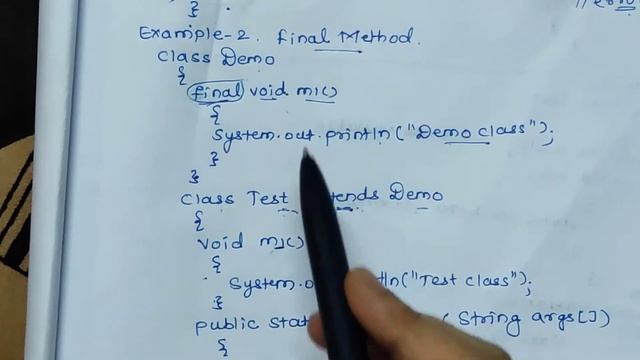 }
Example-2. final Method.
class Demo
{
final void m1()
{
System.out.println("Demo class");
}
}
class Test Demo
{
void m1()
{
("Test class");
}
public String args[])
{